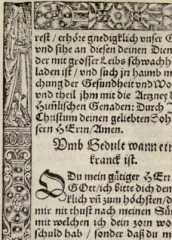 rest / erhöre gnedigklich vnser G
vnd sihe an diesen deinen Dien
der mit grosser Leibs schwachh
laden ist / vnd such jn haimb m
chung der Gesundheit vnd Wo
vnd theil jhm mit die Artzney d
Hiṁlischen Genaden: Durch
Christum deinen geliebten Soh
sern HErrn / Amen.
Vmb Gedult wann ein
kranck ist.
O Du mein gütiger HErr
GOtt / ich bitte dich den
klich vn̄ zum höchsten / d
mir nit thust nach meinen Sün
mit welchen ich dein zorn wo
schuld hab / sonder daß du m